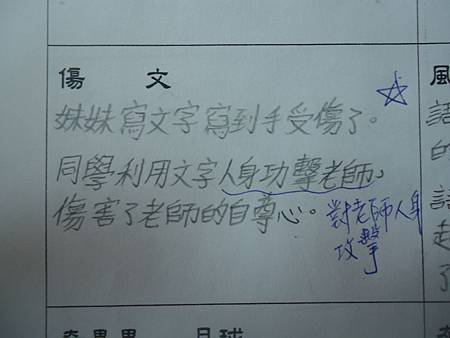 傷 文
妹妹寫文字寫到手受傷了。
同學利用文字人身功擊老師，
傷害了老師的自尊心。對老師人身
攻擊
風
語
的
語
起
了
月球